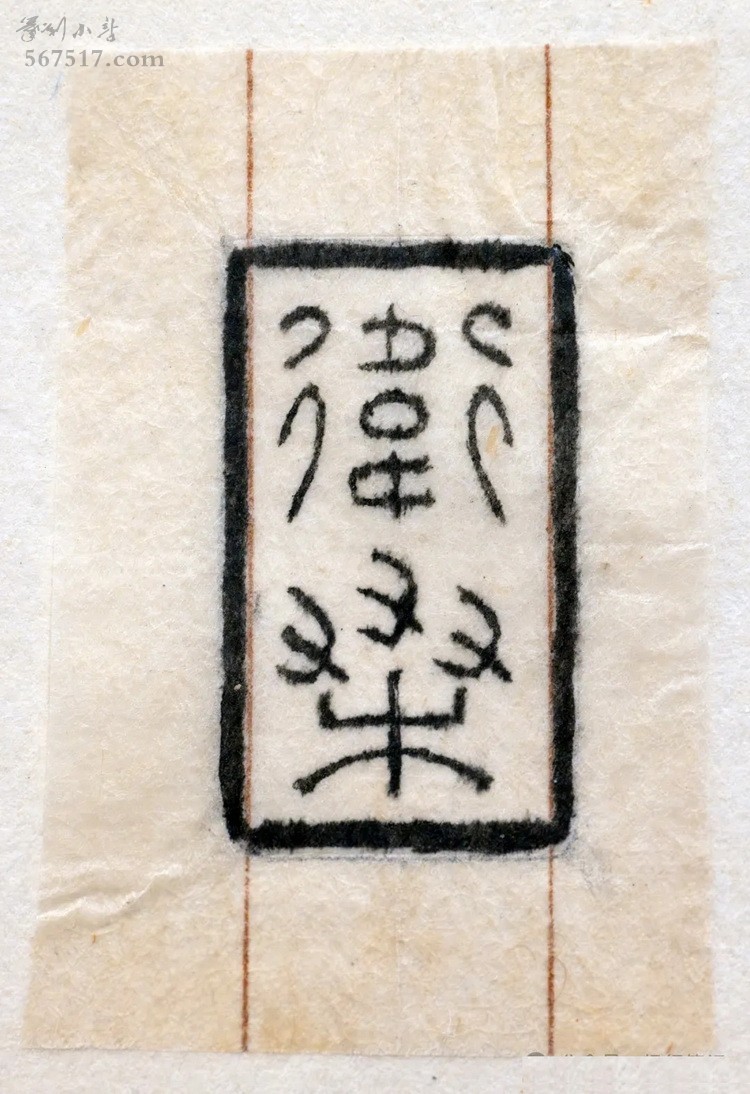 篆刻小站
567517.com
衛
桑